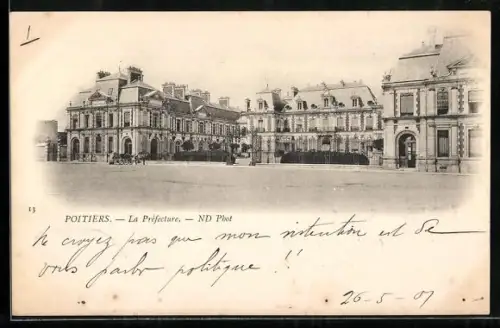 1
13
POITIERS. — La Préfecture. — ND Phot
Ne croyez pas que mon intention est de
vous parler politique !!
26-5-01